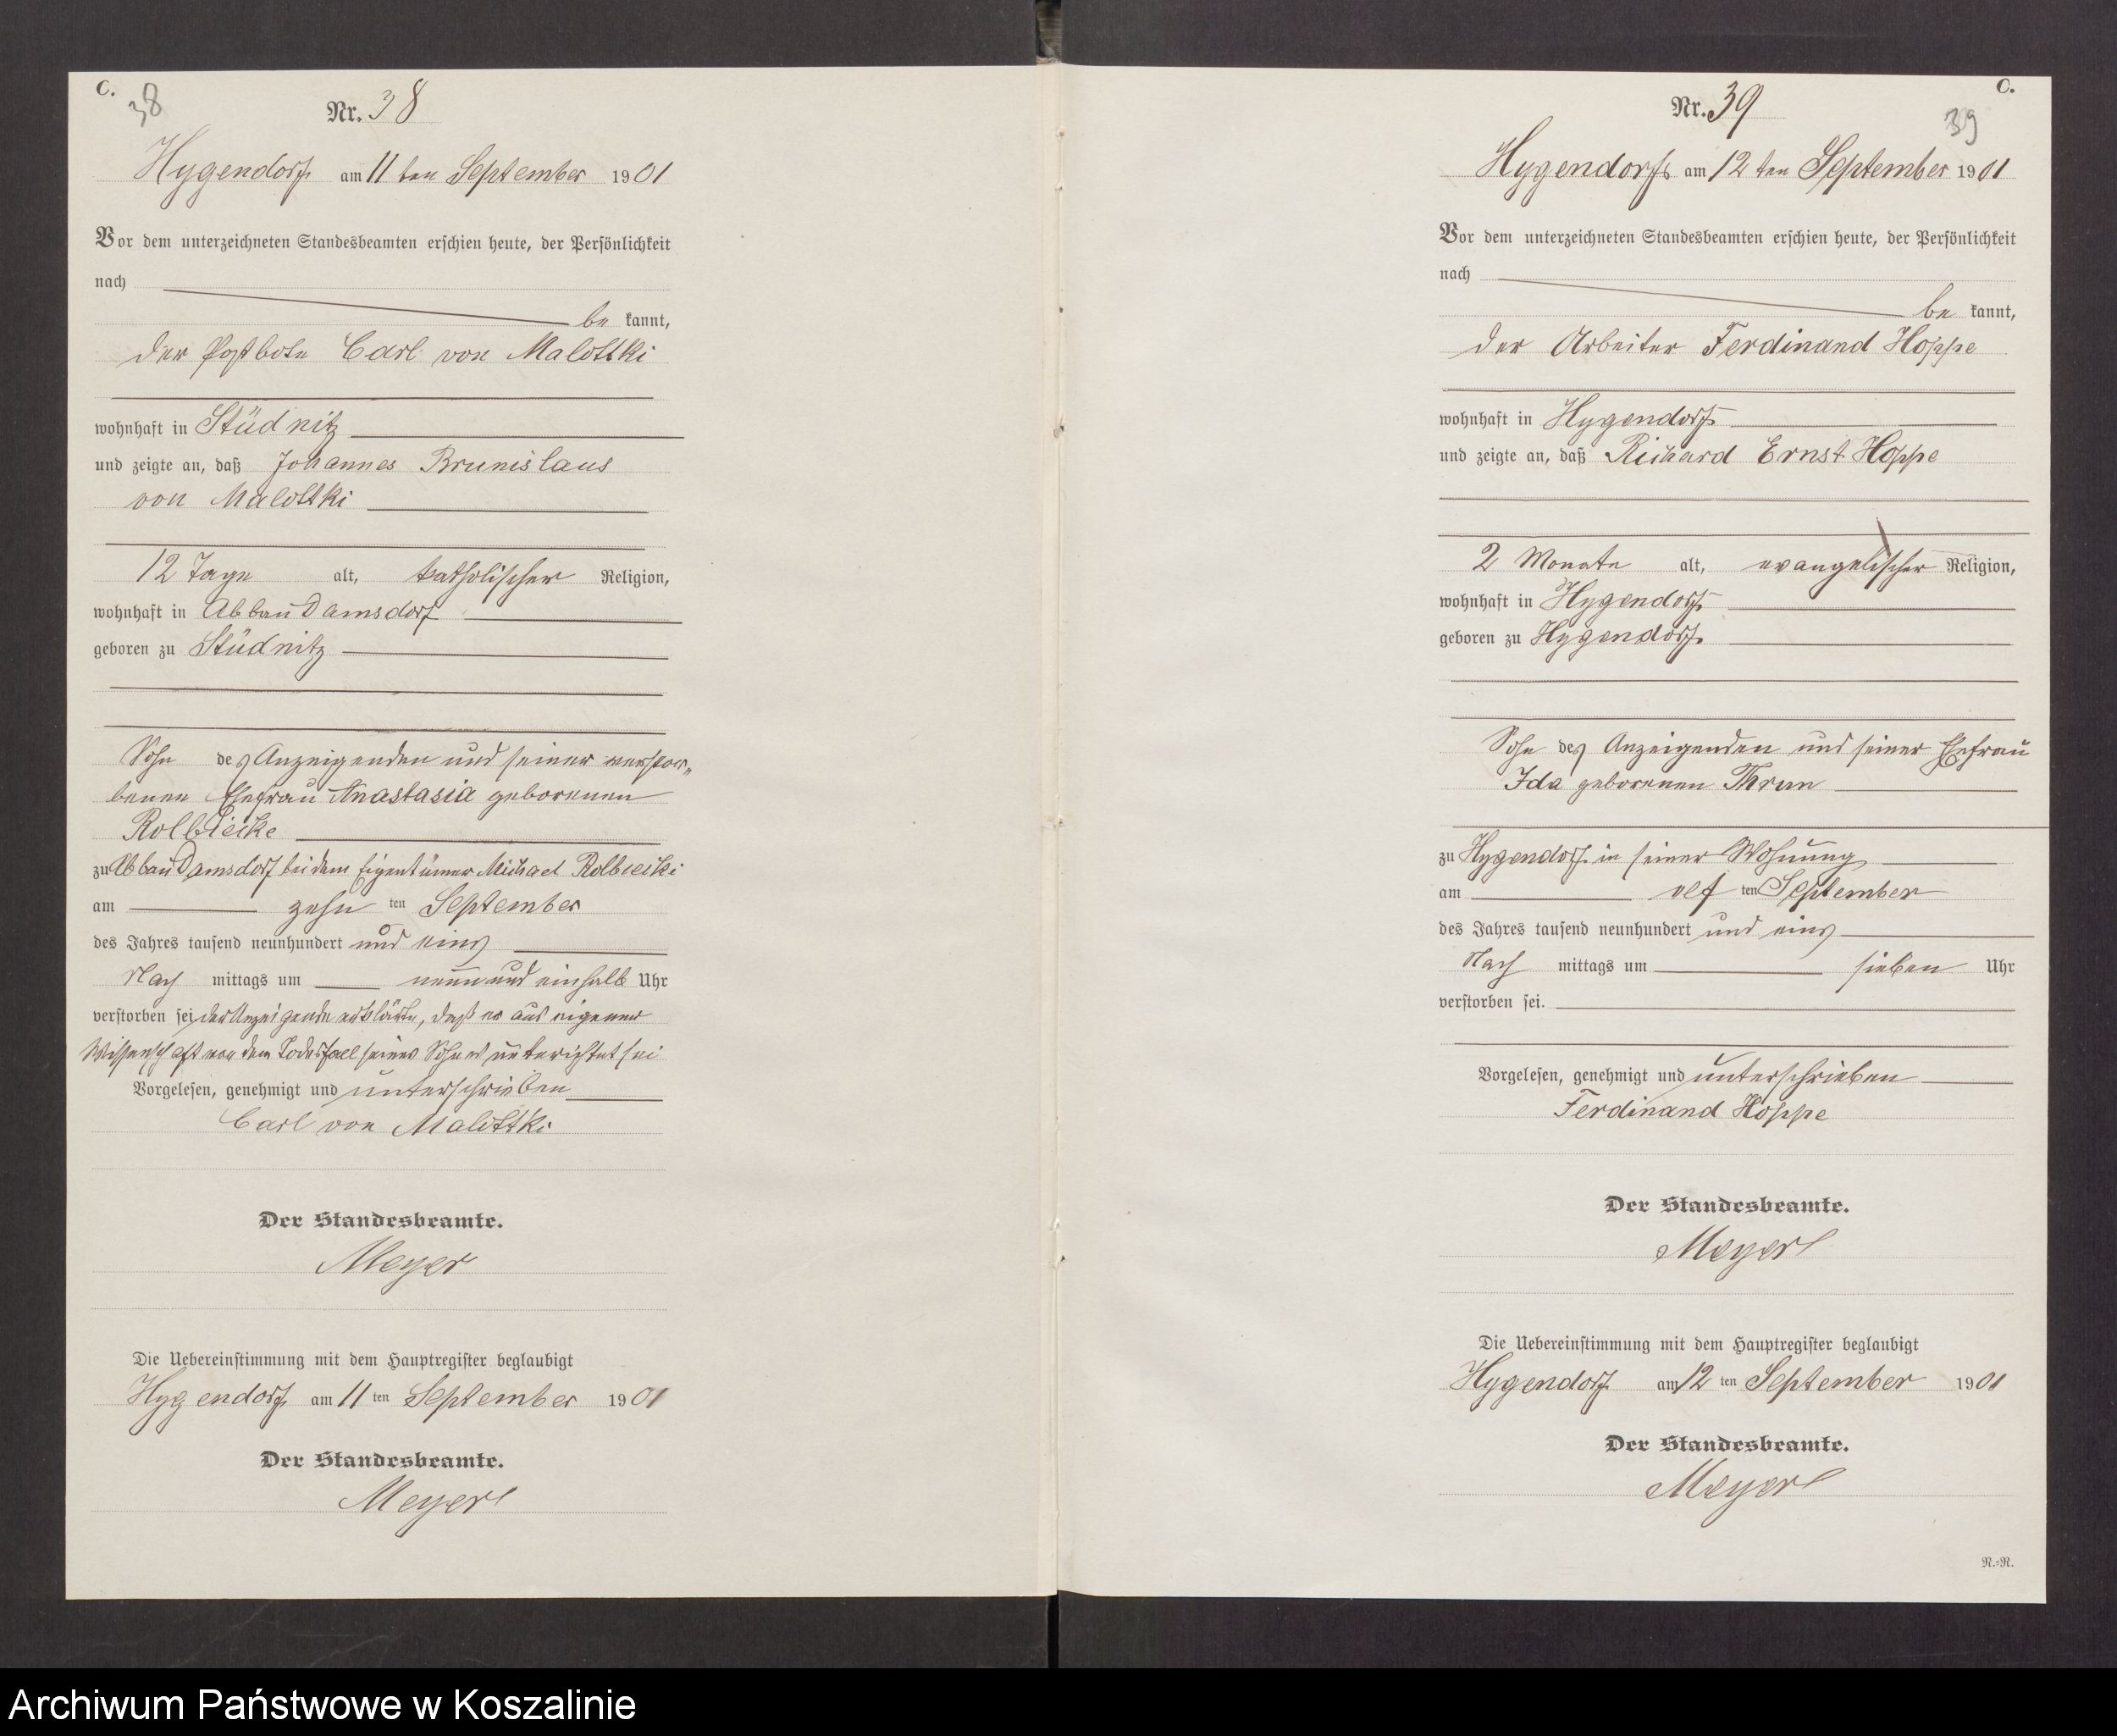 C.
38
Nr. 38
Hygendorf am 11 ten September 1901
Vor dem unterzeichneten Standesbeamten erschien heute, der Persönlichkeit
nach
be kannt,
der Postbote Carl von Malottki
wohnhaft in Stüdnitz
und zeigte an, daß Johannes Brunislaus
von Malottki
12 Tage alt, katholischer Religion,
wohnhaft in Abbau Damsdorf
geboren zu Stüdnitz
Sohn des Anzeigenden und seiner verstor„
benen Ehefrau Anastasia geborenen
Rolbiecke
zu Abbau Damsdorf bei dem Eigentümer Michael Rolbiecki
am zehn ten September
des Jahres tausend neunhundert und eins
Nach mittags um neun und einhalb Uhr
verstorben sei, der Anzeigende erklärte, daß er aus eigener
Wissenschaft von dem Todesfall seines Sohnes unterichtet sei
Vorgelesen, genehmigt und unterschrieben
Carl von Malottki
Der Standesbeamte.
Meyer
Die Uebereinstimmung mit dem Hauptregister beglaubigt
Hygendorf am 11 ten September 1901
Der Standesbeamte.
Meyer
C.
39
Nr. 39
Hygendorf am 12 ten September 1901
Vor dem unterzeichneten Standesbeamten erschien heute, der Persönlichkeit
nach
be kannt,
der Arbeiter Ferdinand Hoppe
wohnhaft in Hygendorf
und zeigte an, daß Richard Ernst Hoppe
2 Monate alt, evangelischer Religion,
wohnhaft in Hygendorf
geboren zu Hygendorf
Sohn des Anzeigenden und seiner Ehefrau
Ida geborenen Thrun
zu Hygendorf in seiner Wohnung
am elf ten September
des Jahres tausend neunhundert und eins
Nach mittags um sieben Uhr
verstorben sei.
Vorgelesen, genehmigt und unterschrieben
Ferdinand Hoppe
Der Standesbeamte.
Meyer
Die Uebereinstimmung mit dem Hauptregister beglaubigt
Hygendorf am 12 ten September 1901
Der Standesbeamte.
Meyer
N.=N.
Archiwum Państwowe w Koszalinie